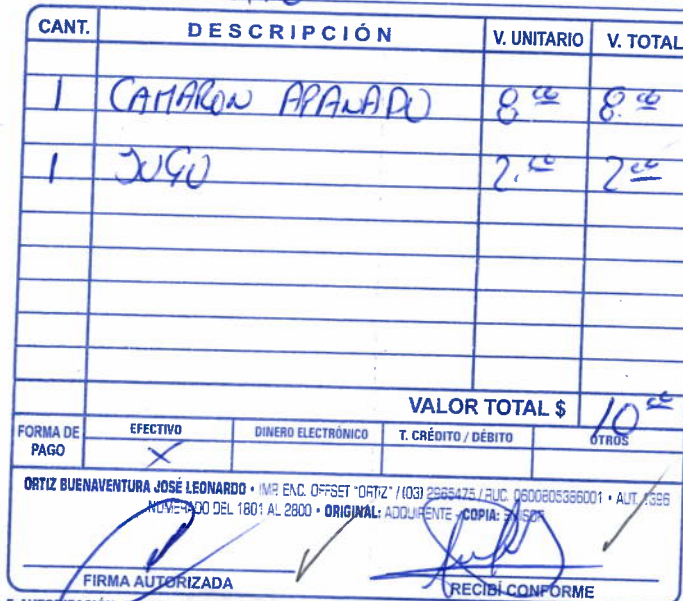 CANT. DESCRIPCIÓN V. UNITARIO V. TOTAL
1 CAMARON APANADO 8.00 8.00
1 JUGO 2.00 2.00
VALOR TOTAL $ 10.00
FORMA DE PAGO EFECTIVO X DINERO ELECTRÓNICO T. CRÉDITO / DÉBITO OTROS
ORTIZ BUENAVENTURA JOSÉ LEONARDO • IMP. ENC. OFFSET "ORTIZ" / (03) 2965475 / RUC. 0600805386001 • AUT. 1396
NUMERADO DEL 1801 AL 2800 • ORIGINAL: ADQUIRENTE - COPIA: EMISOR
FIRMA AUTORIZADA RECIBÍ CONFORME